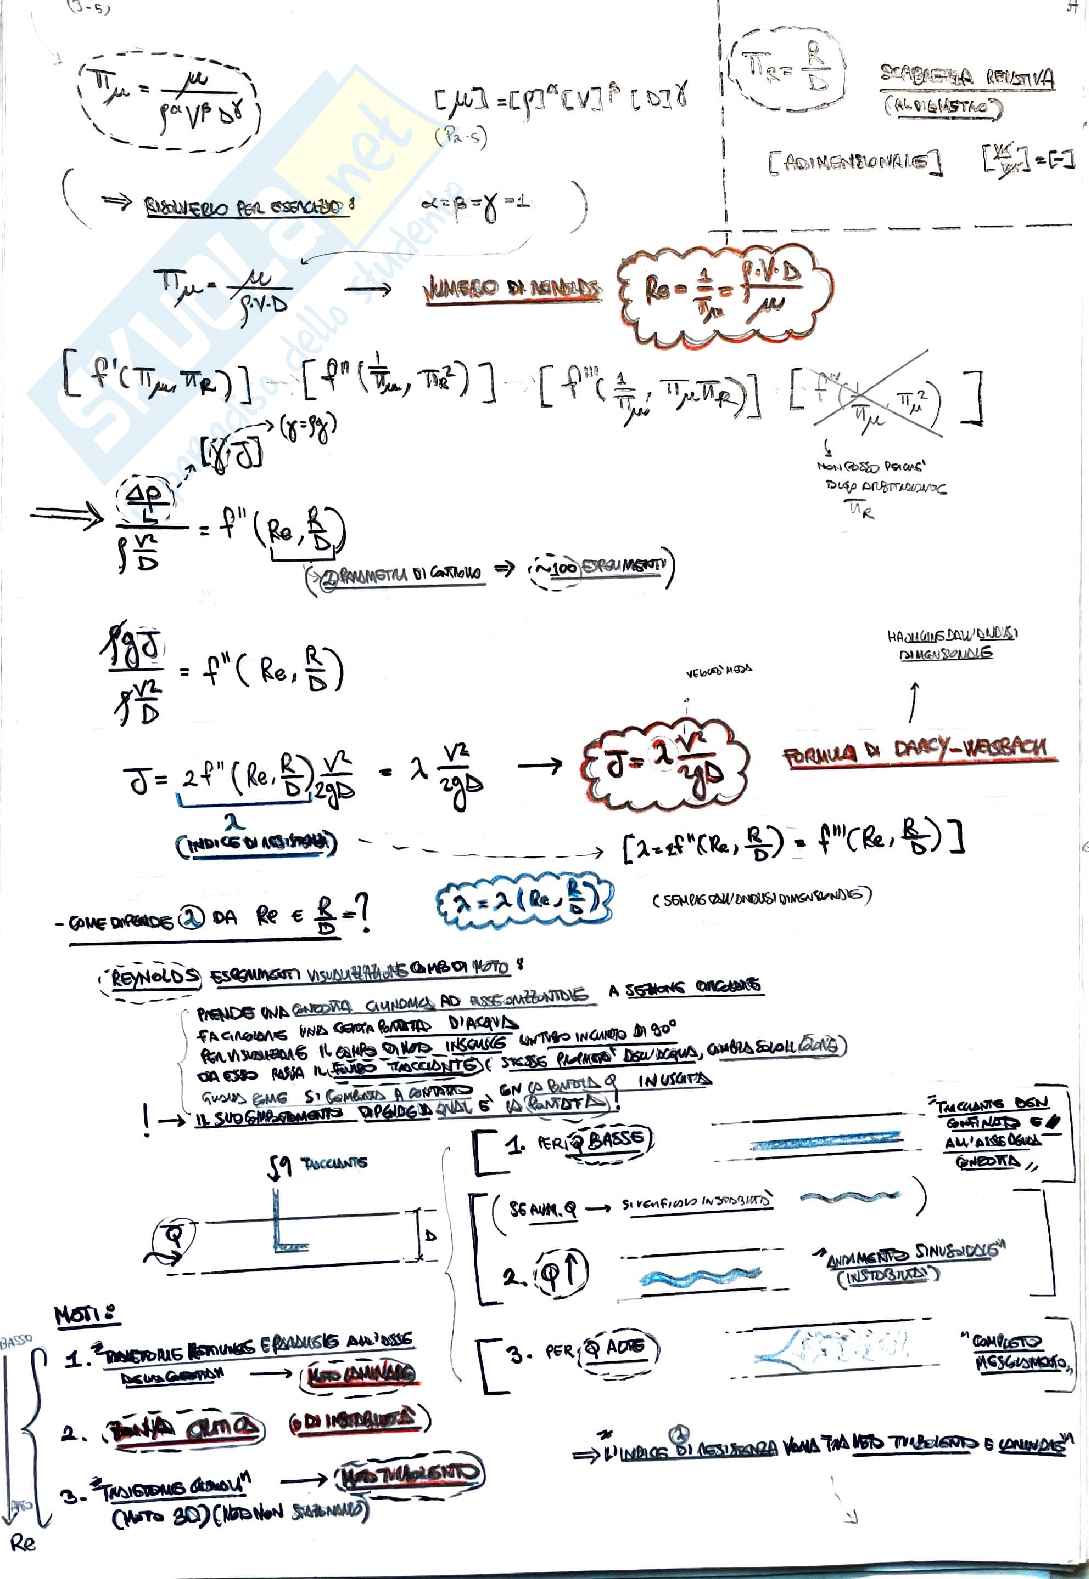 (J-5)
Πμ = μ / ρ^α V^β D^γ
[μ] = [ρ]^α [V]^β [D]^γ
Π_R = R/D
SCABREZZA RELATIVA
(AL DIAMETRO)
[ADIMENSIONALE] [-]
(⇒ RISOLVERLO PER ESERCIZIO: α = β = γ = 1)
Πμ = μ / ρ·V·D → NUMERO DI REYNOLDS Re = 1/Πμ = ρ·V·D / μ
[f'(Πμ, Π_R)] [f''(1/Πμ, Π_R²)] [f'''(1/Πμ, Πμ Π_R)] [f''''(1/Πμ, Πμ²)]
[γ·J] → (γ = ρg)
NON POSSO PERCHÉ
Π_R
⇒ (Δp/L) / (ρ V²/D) = f''(Re, R/D)
(→ 2 PARAMETRI DI CONTROLLO ⇒ ~100 ESPERIMENTI)
ρgJ / (ρ V²/D) = f''(Re, R/D)
DALL'ANALISI
DIMENSIONALE
VELOCITÀ MEDIA
J = 2f''(Re, R/D) V²/2gD = λ V²/2gD → J = λ V²/2gD FORMULA DI DARCY-WEISBACH
λ
(INDICE DI RESISTENZA) → [λ = 2f''(Re, R/D) = f'''(Re, R/D)]
λ = λ(Re, R/D) (SEMPRE DALL'ANALISI DIMENSIONALE)
- COME DIPENDE λ DA Re E R/D = ?
REYNOLDS ESPERIMENTI VISUALIZZAZIONE CAMPO DI MOTO:
PRENDE UNA CONDOTTA CILINDRICA AD ASSE ORIZZONTALE A SEZIONE CIRCOLARE
FA CIRCOLARE UNA CERTA PORTATA D'ACQUA
PER VISUALIZZARE IL CAMPO DI MOTO INSERISCE UN TUBO INCLINATO DI 90°
DA ESSO PASSA IL FLUIDO TRACCIANTE (STESSE PROPRIETÀ DELL'ACQUA, CAMBIA SOLO IL COLORE)
COME SI COMPORTA A CONTATTO CON LA PORTATA Q IN USCITA
! → IL SUO COMPORTAMENTO DIPENDE DA QUAL È LA PORTATA!
q TRACCIANTE
Q
D
1. PER Q BASSE
"TRACCIANTE BEN
CONFINATO E //
ALL'ASSE DELLA
CONDOTTA"
(SE AUM. Q → SI VERIFICANO INSTABILITÀ)
2. Q↑
"ANDAMENTO SINUSOIDALE"
(INSTABILITÀ)
3. PER Q ALTE
"COMPLETO
MESCOLAMENTO"
MOTI:
BASSO
1. "TRAIETTORIE RETTILINEE E PARALLELE ALL'ASSE
DELLA CONDOTTA → MOTO LAMINARE
2. ZONA CRITICA (O DI INSTABILITÀ)
3. "TRAIETTORIE CASUALI" → MOTO TURBOLENTO
(MOTO 3D) (MOTO NON STAZIONARIO)
ALTO
Re
⇒ "L'INDICE DI RESISTENZA λ VARIA TRA MOTO TURBOLENTO E LAMINARE"
SKUOLA.net
paradiso dello studente